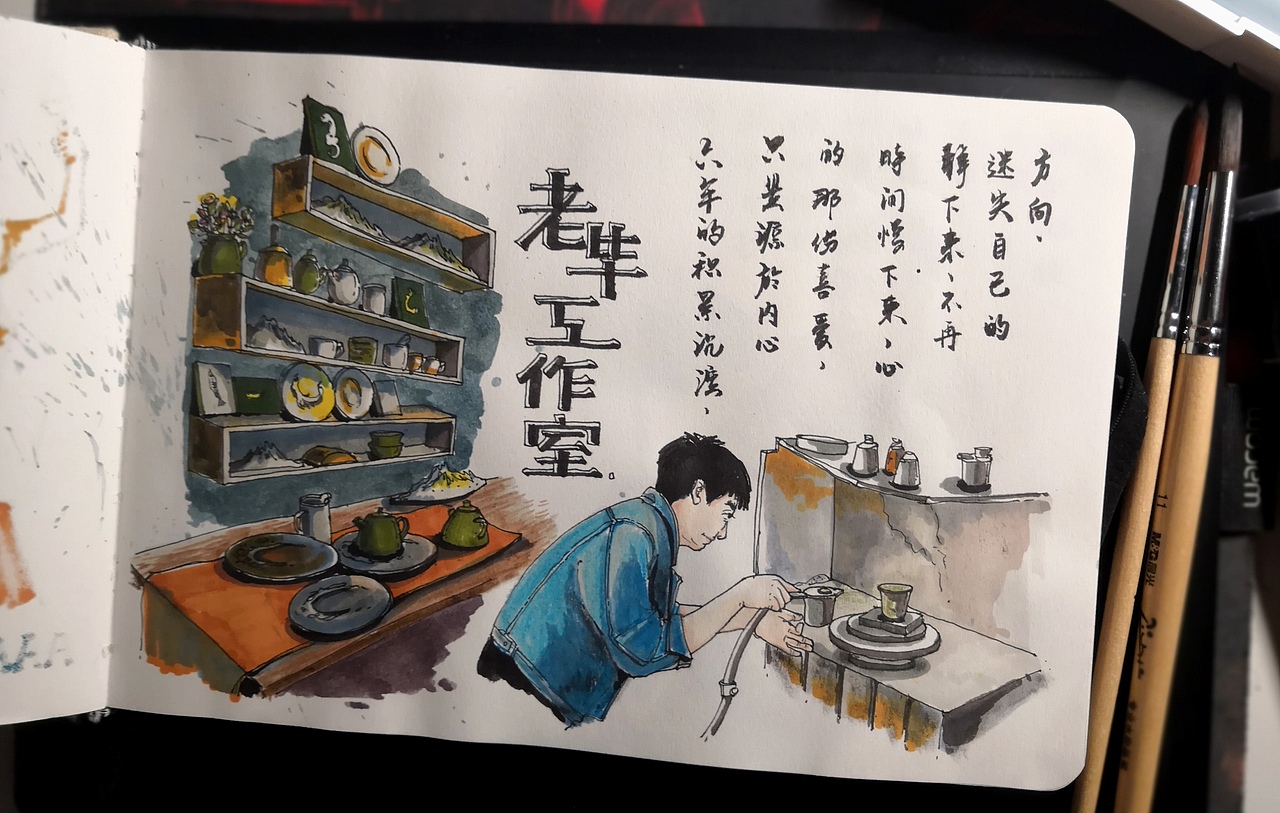 老毕工作室.
六年的积累沉淀，
只是源於内心
的那份喜爱，
時间慢下来，心
静下来、不再
迷失自己的
方向、
11